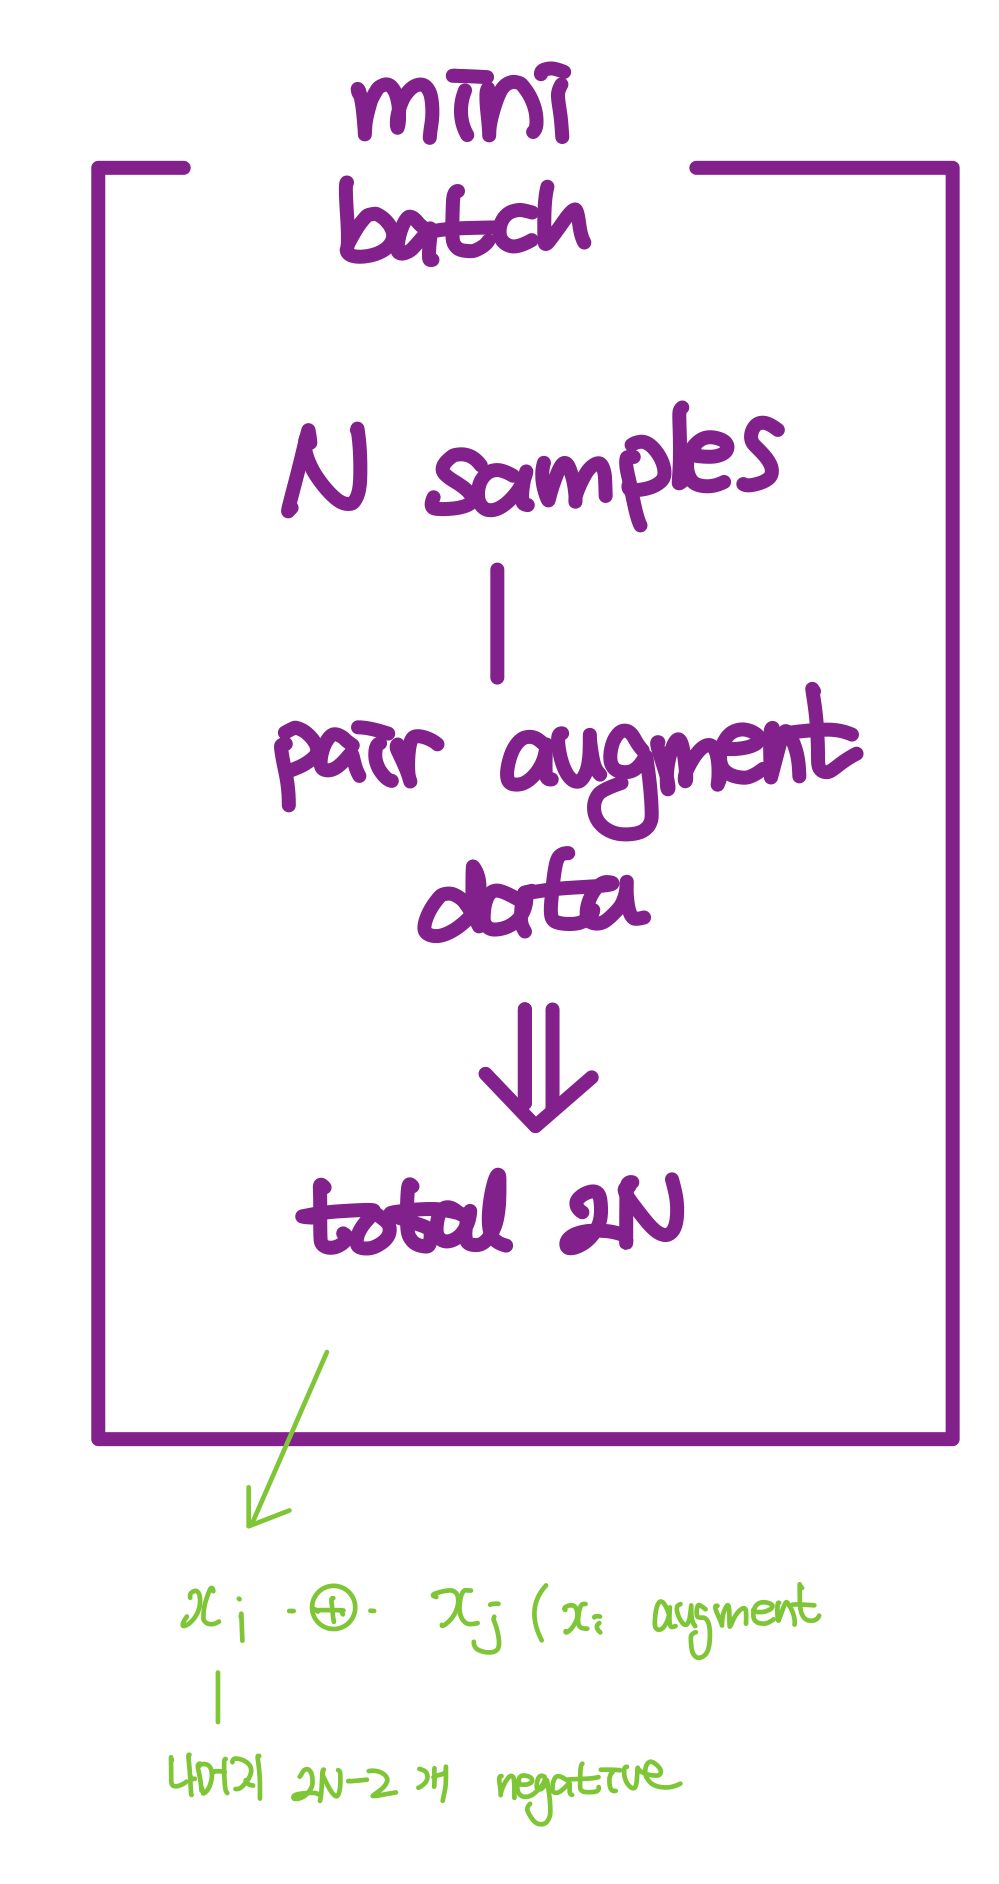 mini
batch
N samples
pair augment
data
total 2N
xi -⊕- xj (xi augment
나머지 2N-2개 negative